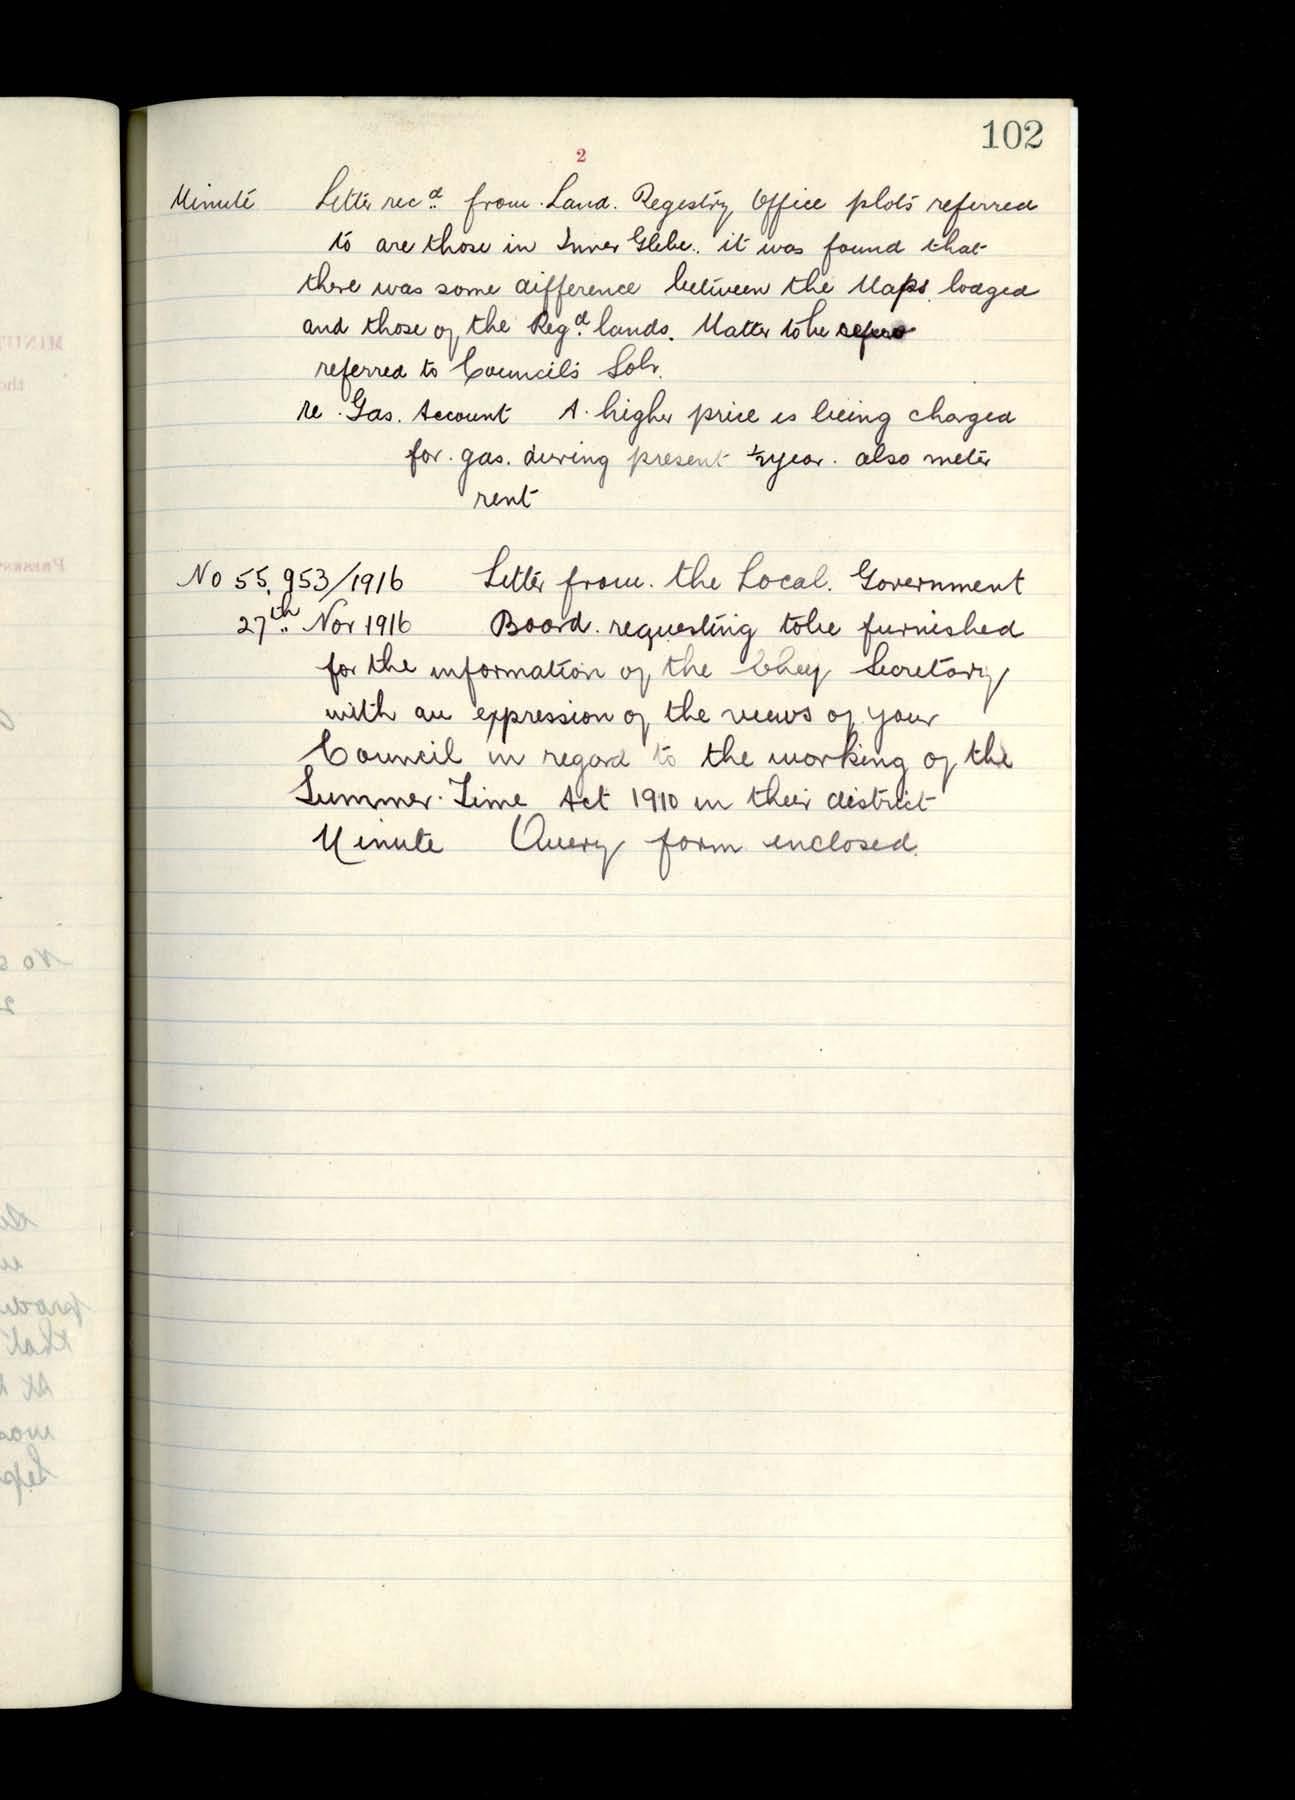 102
2
Minute Letter recd from Land Registry Office plots referred
to are those in Inner Glebe. it was found that
there was some difference between the Maps lodged
and those of the Regd lands. Matter to be refero
referred to Council's Solr.
re Gas. Account A higher price is being charged
for gas. during present ½ year. also meter
rent
No 55,953/1916 Letter from the Local. Government
27th Nov 1916 Board. requesting to be furnished
for the information of the Chey Secretary
with an expression of the views of your
Council in regard to the working of the
Summer Time Act 1910 in their district
Minute Query form enclosed.